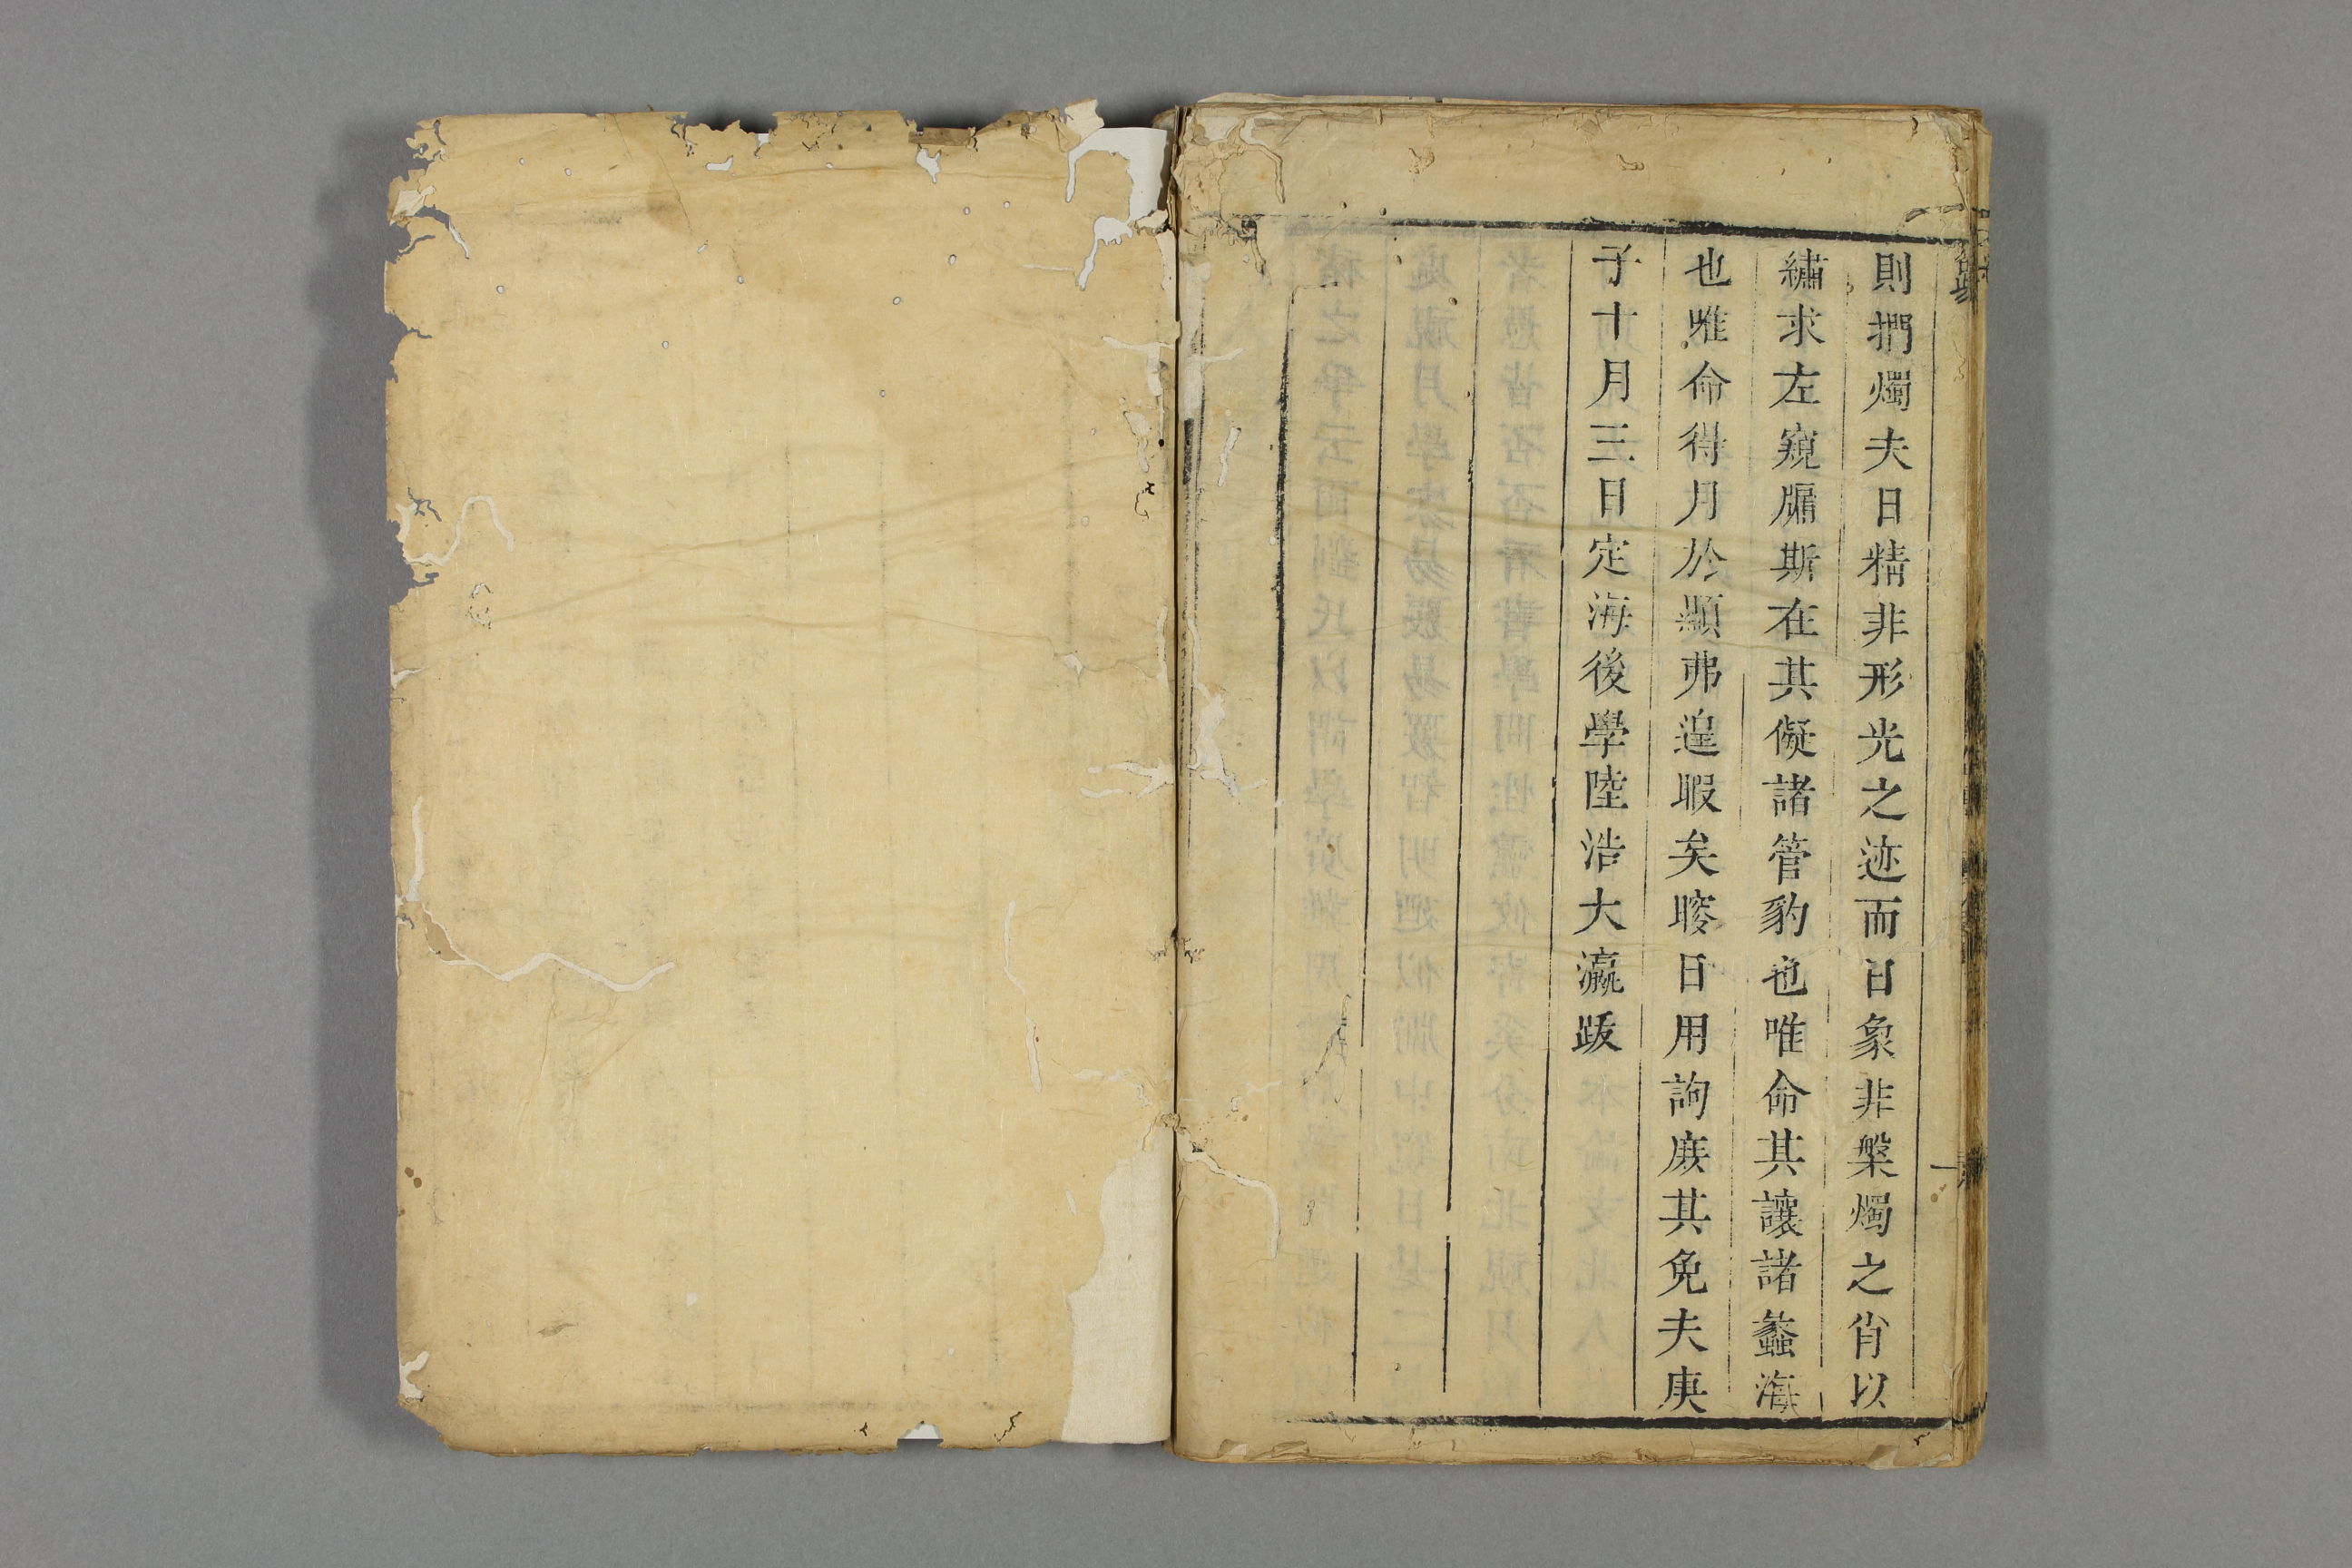 則捫燭夫日精非形光之迹而日象非槃燭之肖以
繡求左窺牖斯在其儗諸管豹也唯命其讓諸蠡海
也唯命得月於顯弗遑暇矣晙日用詢庻其免夫庚
子十月三日定海後學陸浩大瀛跋